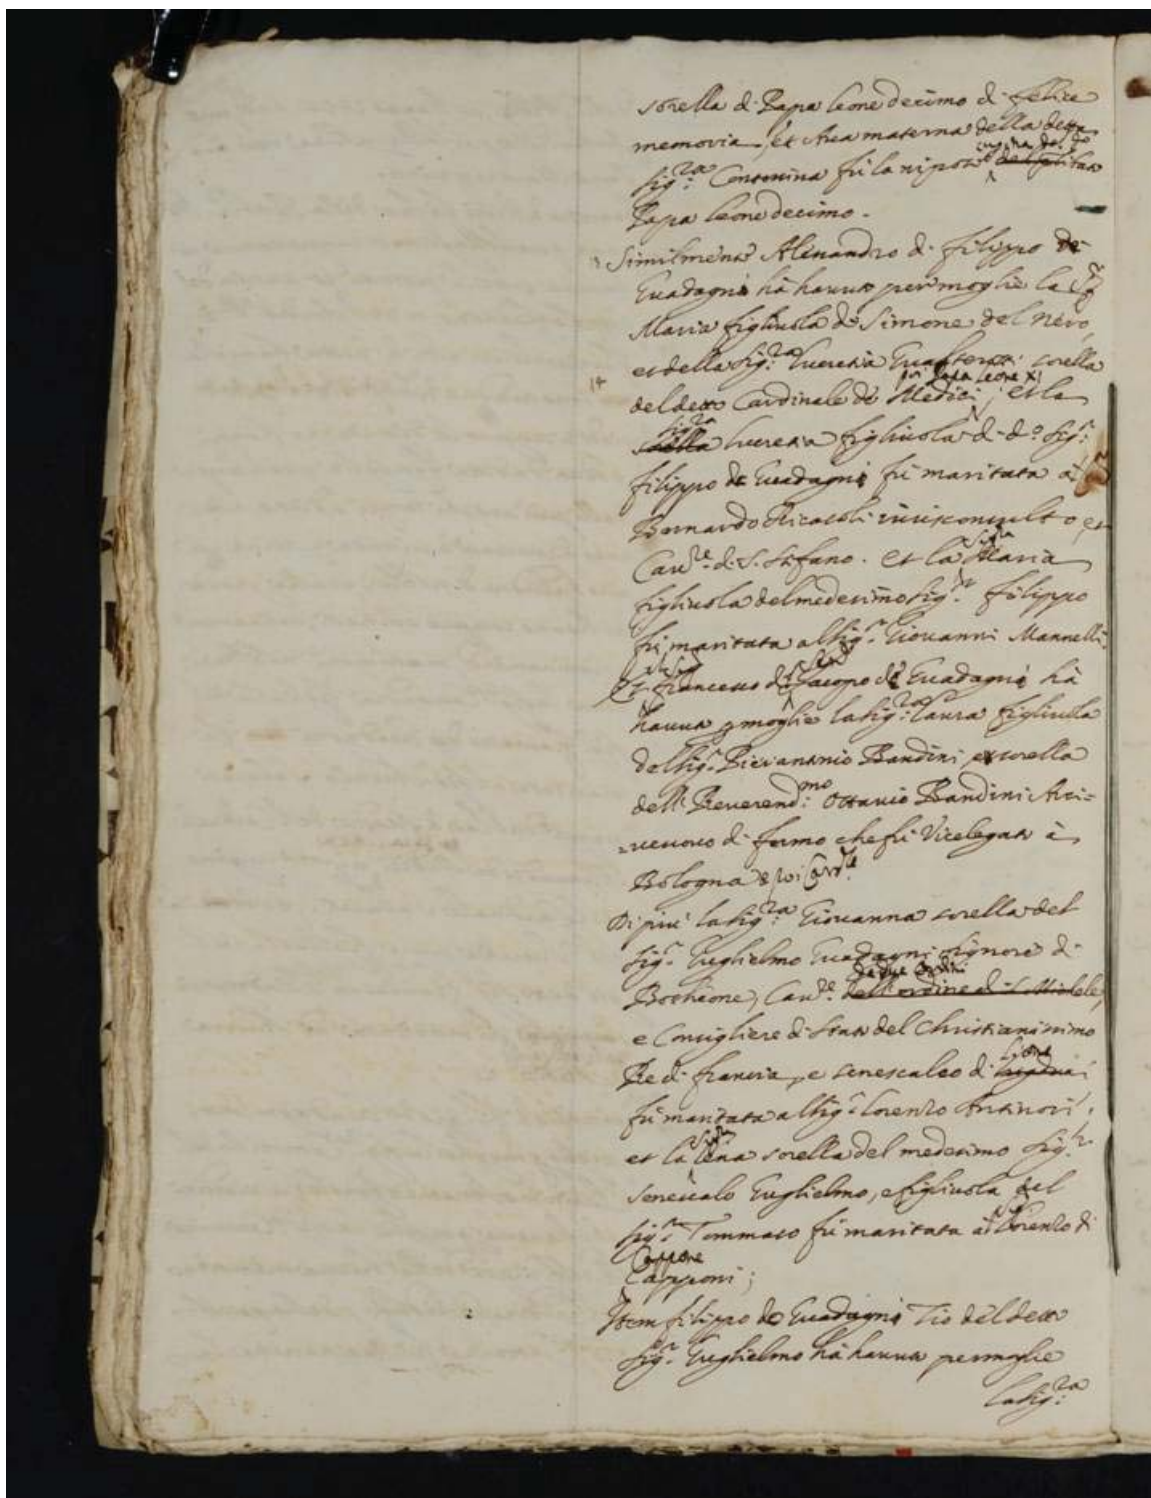 sorella di Papa leone decimo di felice
memoria, et Ava materna della detta
cugina del do
sig.ra Contenina fù la nipote del
Papa leone decimo.
Similmente Alessandro di filippo de
Guadagni hà hauuto per moglie la Sig
Maria figliuola di Simone del Nero,
et della sig.ra lucretia Gualterotti sorella
poi Papa Leone XI
del detto Cardinale de Medici, et la
sig.ra
sorella lucretia figliuola di d.o sig.r
filippo de Guadagni fù maritata à
Bernardo Ricasoli iurisconsulto, et
Cau.re di S. Stefano. et la Sig.ra Maria
figliuola del medesimo sig.r filippo
fù maritata al sig.r Giouanni Mannelli.
Et il Sig.r francesco di Jacopo de Guadagni hà
hauuta p moglie la sig.ra laura figliuola
del sig.r Pierantonio Bandini et sorella
dell Reuerend.mo Ottauio Bandini Arci=
=uescouo di fermo che fù Vicelegato à
Bologna e poi Card.le
Di più la sig.ra Giouanna sorella del
sig.r Guglielmo Guadagni signore di
da due ordini
Botheone, Cau.re dell'ordine di S. Michele,
e Consigliere di stato del Christianissimo
lione
Re di francia, e senescalco di
fù maritata al sig.r lorenzo Antinori,
et la Sig.ra lena sorella del medesimo sig.r
senescalo Guglielmo, e figliuola del
sig.r Tommaso fù maritata al Sig.r lorenzo di
Cappone
Capponi;
Item filippo de Guadagni Tio del detto
sig.r Guglielmo hà hauuta per moglie
la sig.ra